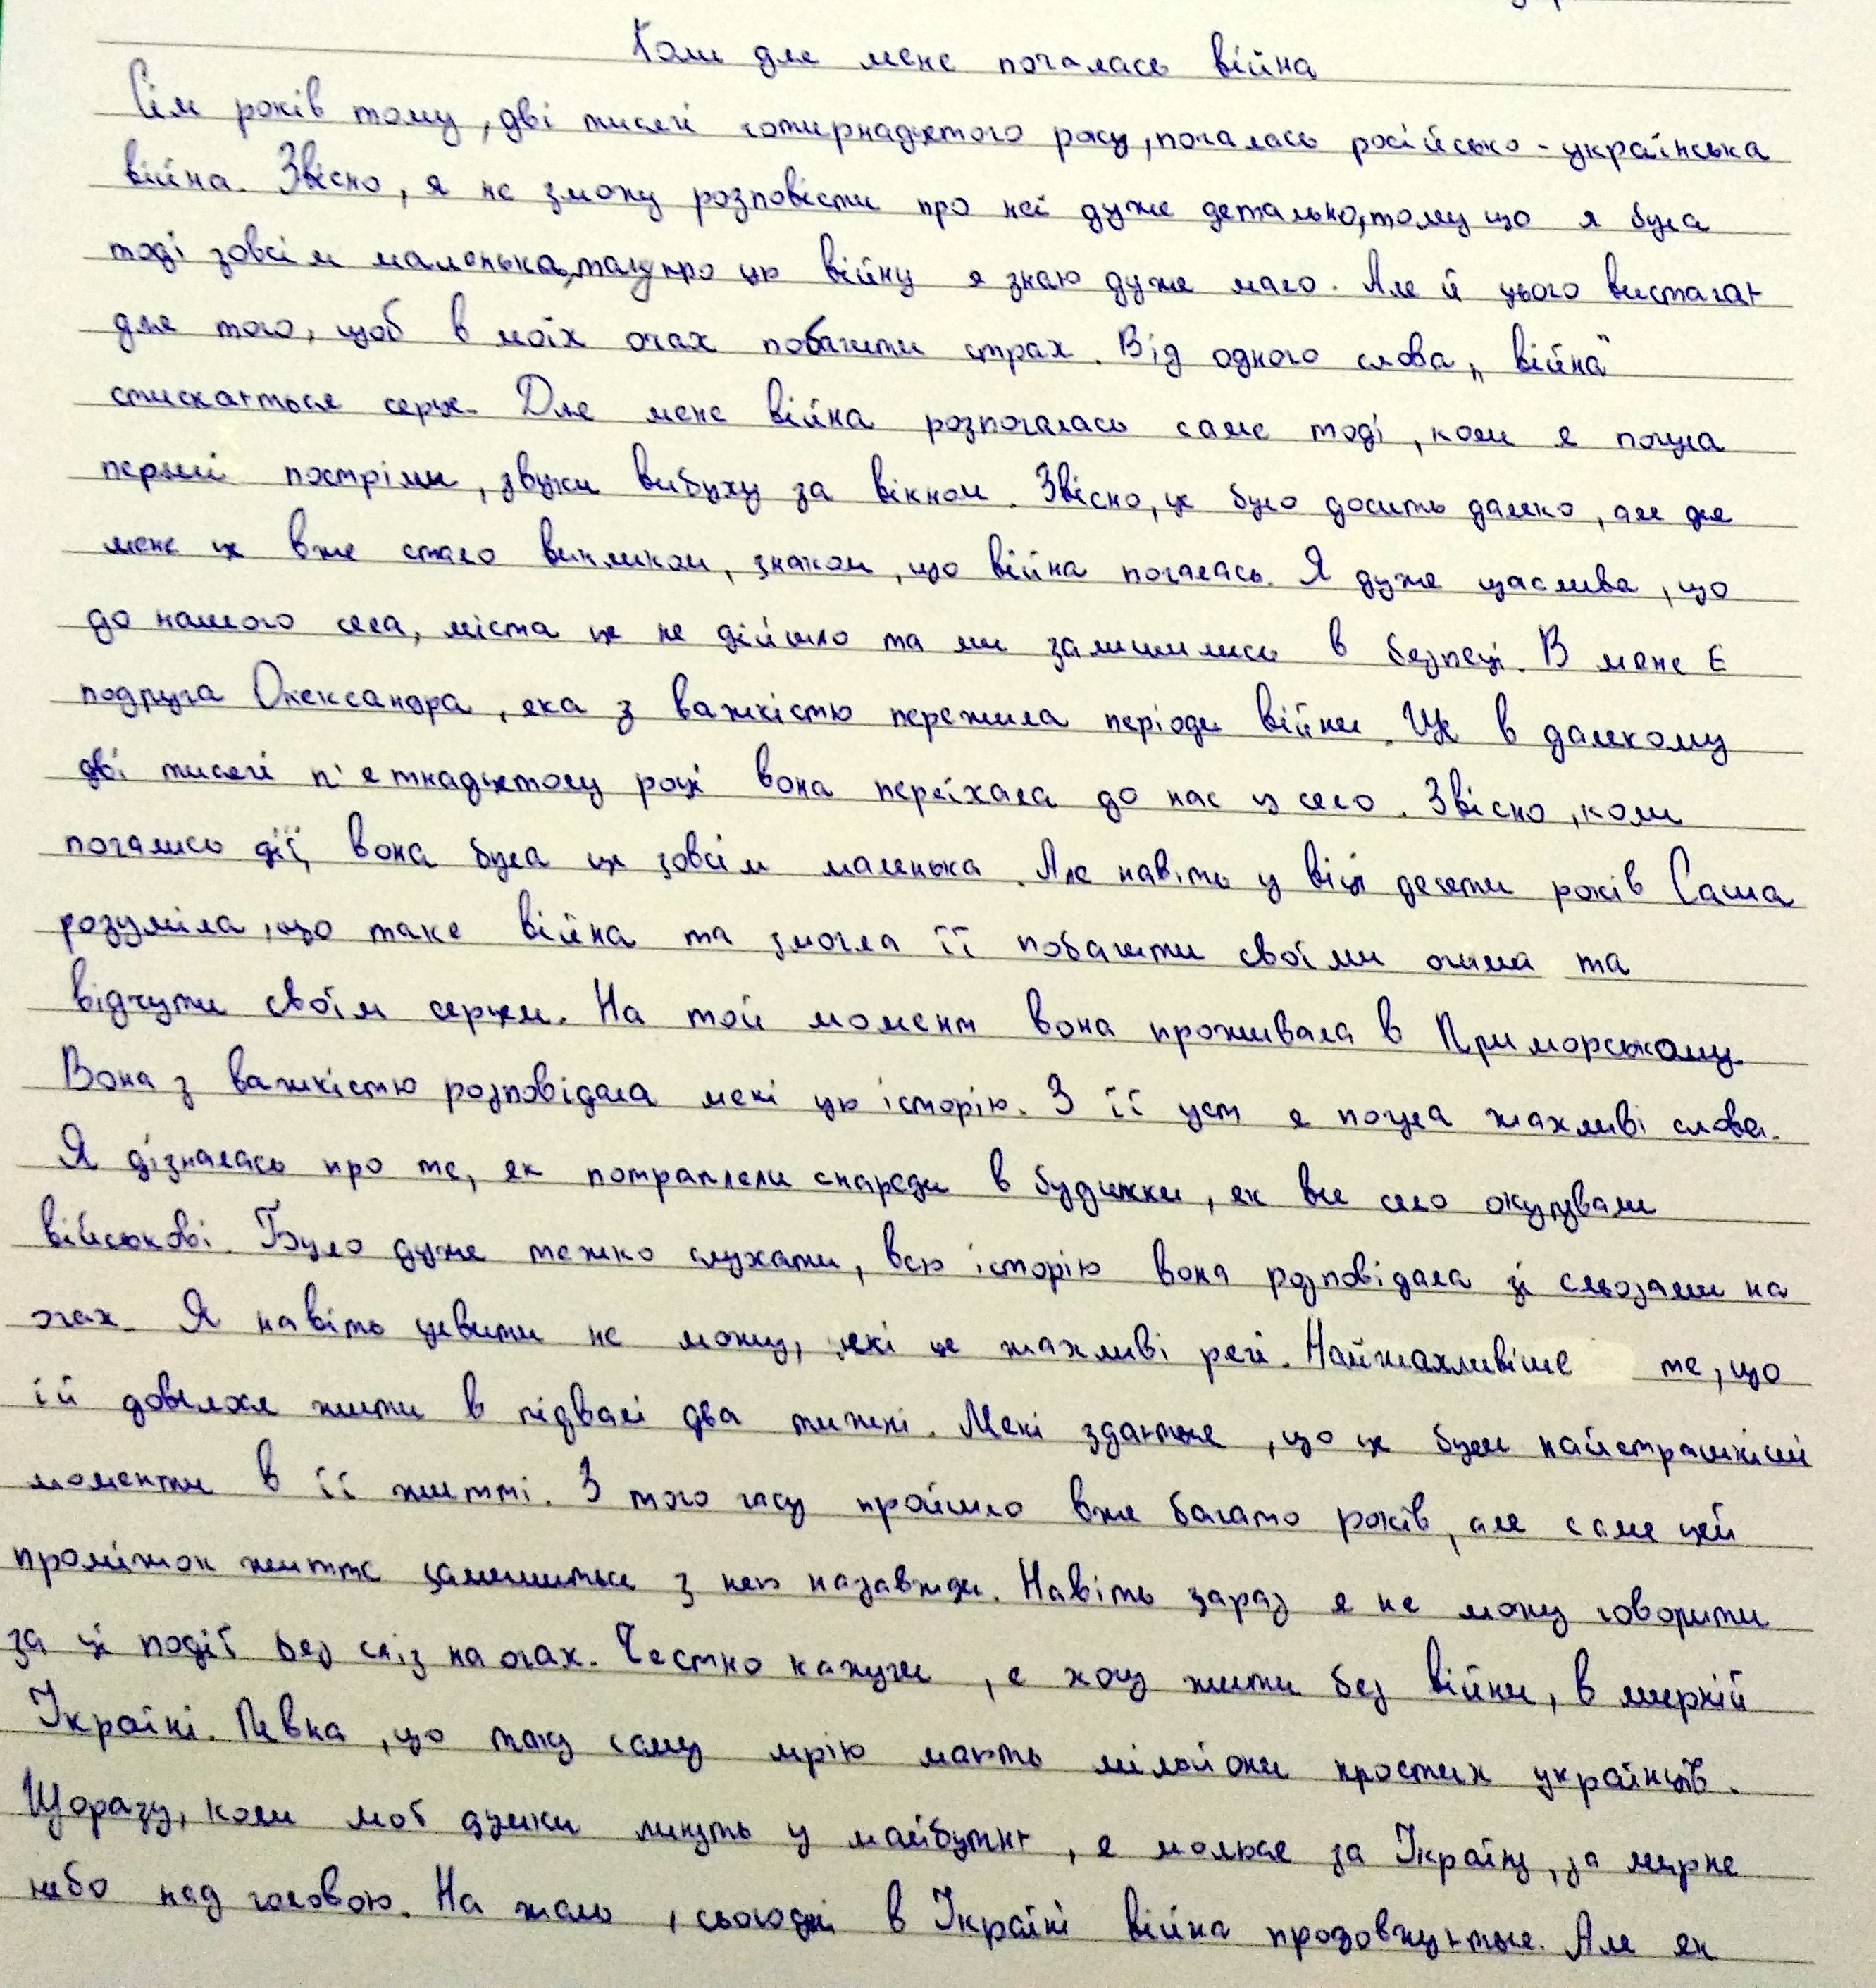 Коли для мене почалась війна
Сім років тому, дві тисячі чотирнадцятого року, почалась російсько-українська
війна. Звісно, я не зможу розповісти про неї дуже детально, тому що я була
тоді зовсім маленька, тому про цю війну я знаю дуже мало. Але й цього вистачає
для того, щоб в моїх очах побачити страх. Від одного слова „війна"
стискається серце. Для мене війна розпочалась саме тоді, коли я почула
перші постріли, звуки вибуху за вікном. Звісно, це було досить далеко, але для
мене це вже стало викликом, знаком, що війна почалась. Я дуже щаслива, що
до нашого села, міста це не дійшло та ми залишились в безпеці. В мене є
подруга Олександра, яка з важкістю пережила періоди війни. Ще в далекому
дві тисячі п'ятнадцятому році вона переїхала до нас у село. Звісно, коли
почались дії, вона була ще зовсім маленька. Але навіть у віці десяти років Саша
розуміла, що таке війна та змогла її побачити своїми очима та
відчути своїм серцем. На той момент вона проживала в Приморському.
Вона з важкістю розповідала мені цю історію. З її уст я почула жахливі слова.
Я дізналась про те, як потрапляли снаряди в будинки, як все село окупували
військові. Було дуже тяжко слухати, всю історію вона розповідала зі сльозами на
очах. Я навіть уявити не можу, які це жахливі речі. Найжахливіше те, що
їй довелося жити в підвалі два тижні. Мені здається, що це були найстрашніші
моменти в її житті. З того часу пройшло вже багато років, але саме цей
проміжок життя залишиться з нею назавжди. Навіть зараз я не можу говорити
за ці події без сліз на очах. Чесно кажучи, я хочу жити без війни, в мирній
Україні. Певна, що таку саму мрію мають мільйони простих українців.
Щоразу, коли мої думки линуть у майбутнє, я молюся за Україну, за мирне
небо над головою. На жаль, сьогодні в Україні війна продовжується. Але як